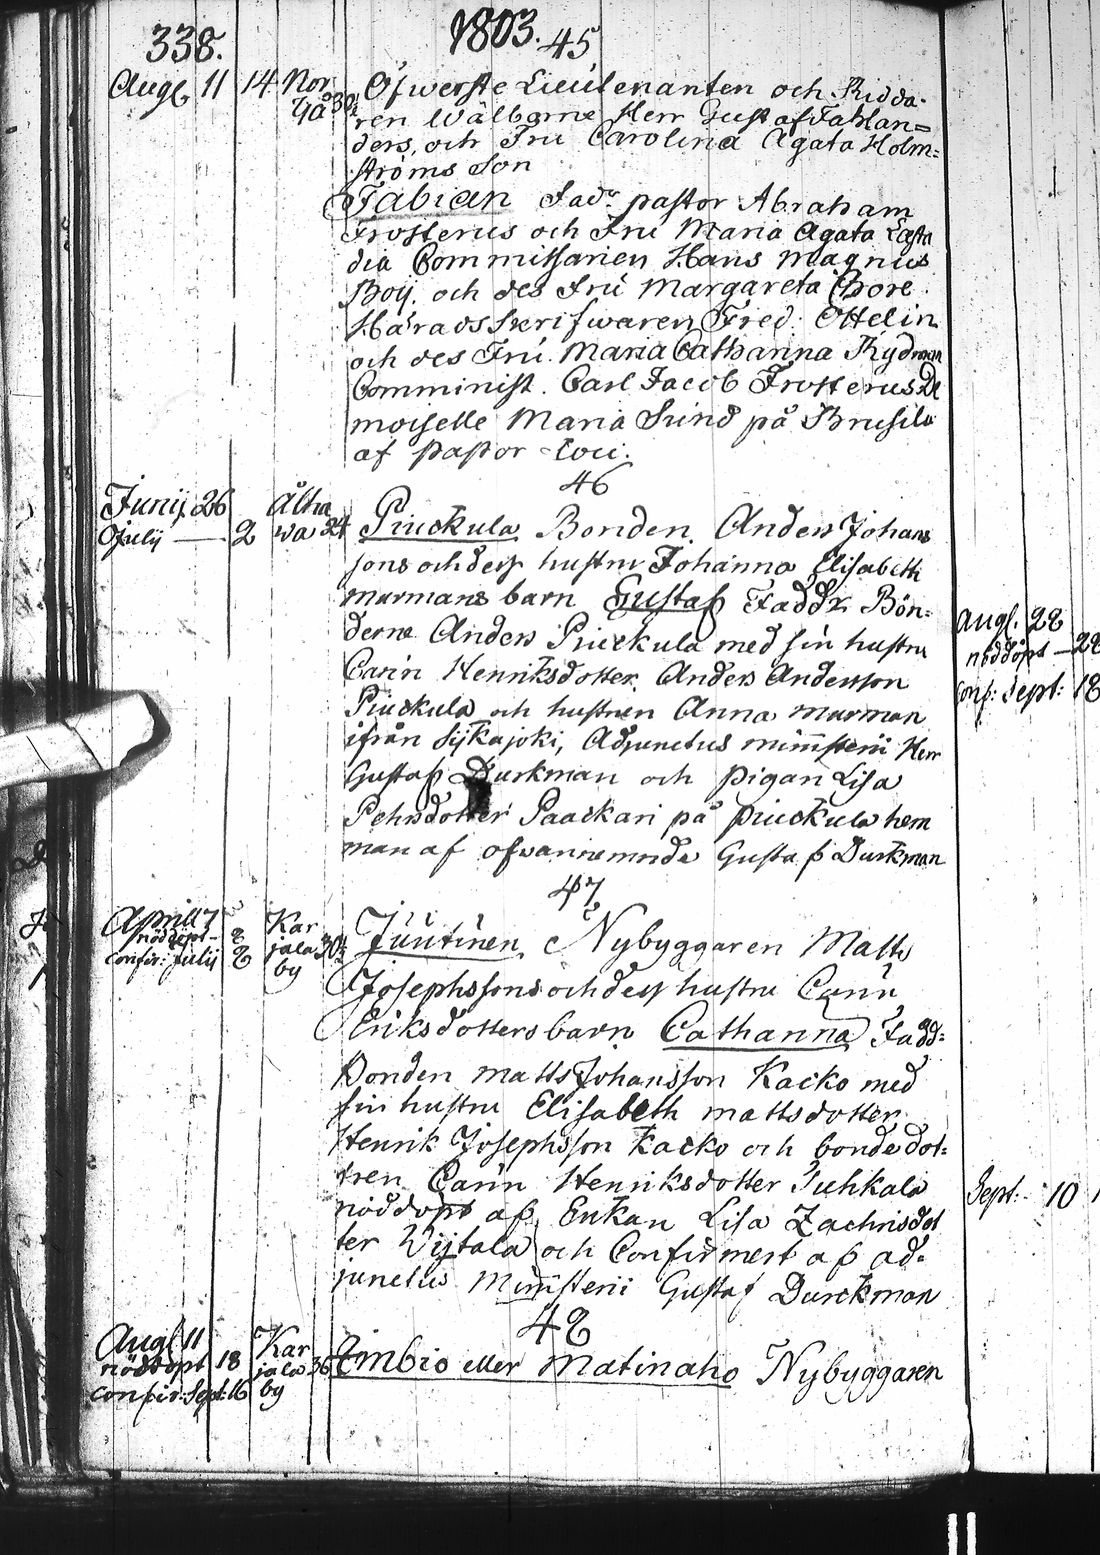 338.
1803.
45
Augl 11 14 Nor
gå 30½
Öfwerste Lieutenanten och Ridda-
ren Wälborne Herr Gustaf Fahlan=
ders, och Fru Carolina Agata Holm=
ströms Son
Fabian Fadr pastor Abraham
Frosterus och Fru Maria Agata
Commissarien Hans Magnus
Boij. och des Fru Margareta Chore
Häradsskrifwaren Fred. Ottelin
och des Fru. Maria Catharina Rydman
Comminist. Carl Jacob Frosterus De
moiselle Maria Sund på Brusila
af pastor loci.
46
Junij 26
Julij — 2
Älha
wa 24
Piuckula Bonden Anders Johans
sons och dess hustru Johanna Elisabeth
murmans barn Gustaf Faddr. Bön=
derne Anders Piuckula med sin hustru
Carin Henriksdotter. Anders Andersson
Piuckula och hustrun Anna murman
ifrån Sijkajoki, Adjunctus ministerii Herr
Gustaf Durkman och pigan Lisa
Pehrsdotter Paackari på piuckula hem
man af ofwannemnde Gustaf Durkman
47
Aprill 7
nöddöpt - 8
confir: Julij 2
Kar
jala 30½
by
Juutinen Nybyggaren Matts
Josephssons och dess hustru Carin
Eriksdotters barn Catharina Fadd=
Bonden matts Johansson Kacko med
sin hustru Elisabeth mattsdotter
Henrik Josephsson Kacko och bondedot=
tren Carin Henriksdotter Juhkala
nöddöpt af Enkan Lisa Zachrisdot
ter Wijtala och Confirmert af ad=
junctus Ministerii Gustaf Durckman
48
Augl 11
nöddöpt 18
confir: Sept: 16
Kar
jala 36
by
Embio eller Matinaho Nybyggaren
Augl. 28
nöddöpt — 28
conf: Sept: 18
Sept: 10